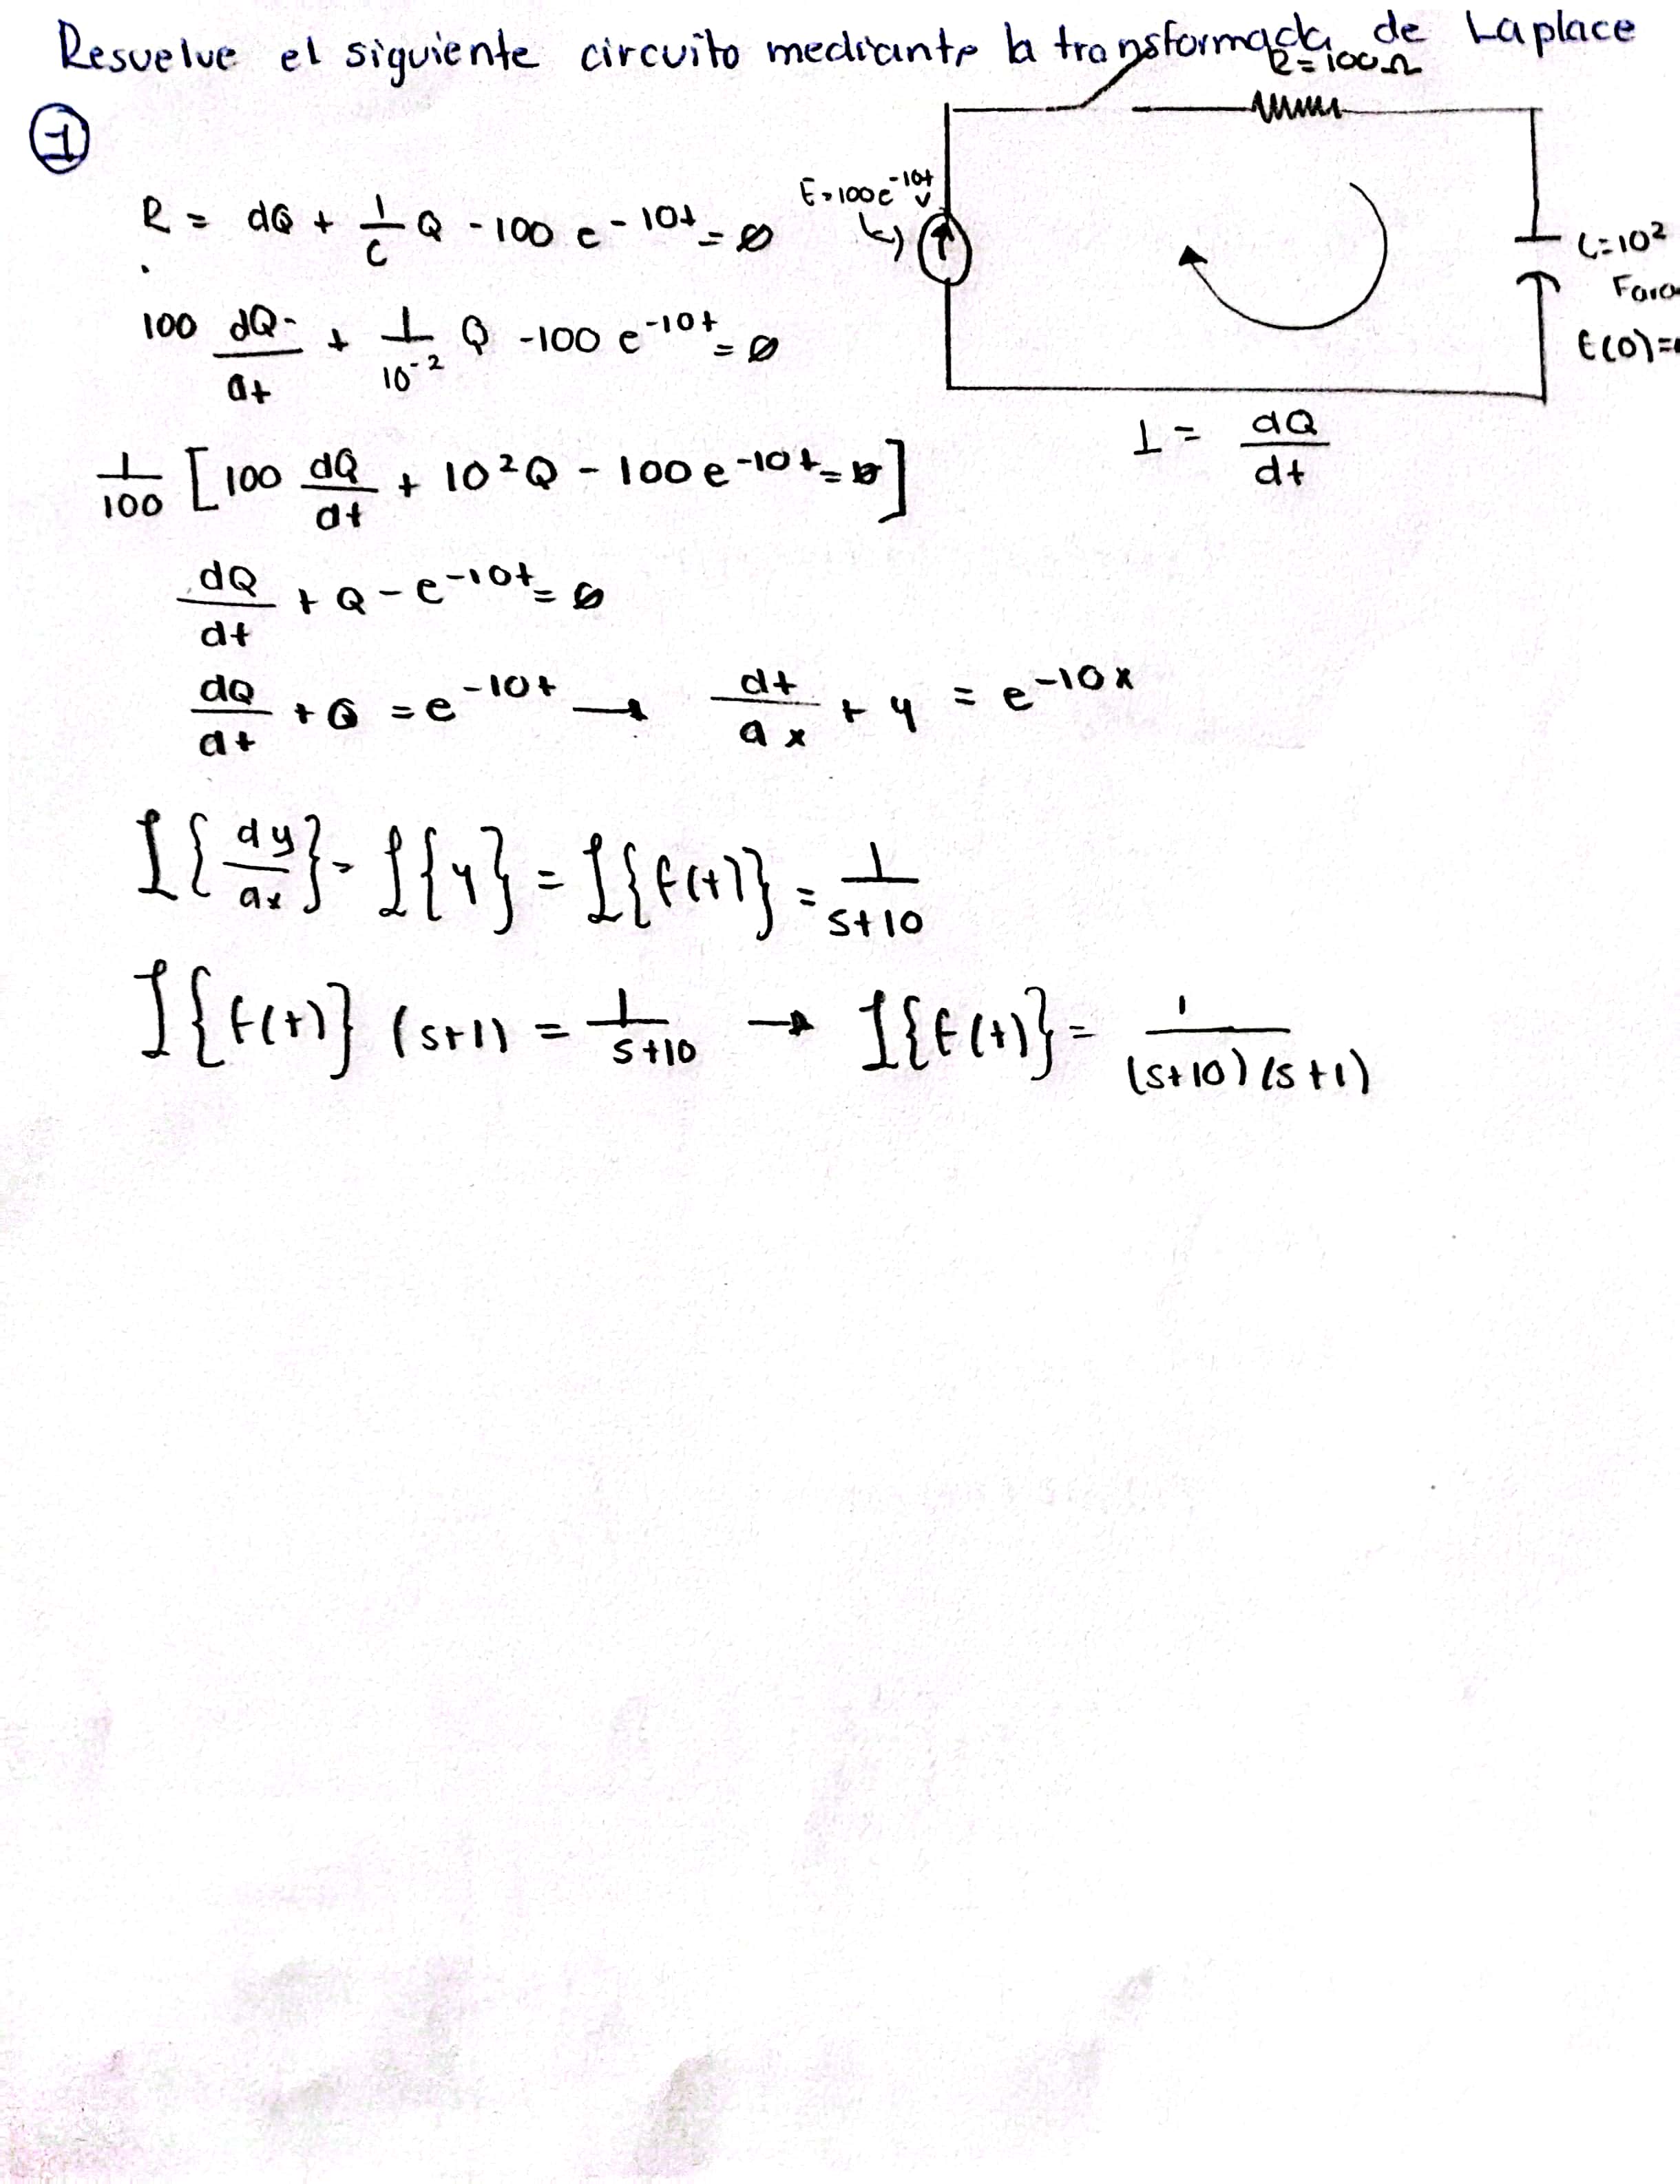 Resuelve el siguiente circuito mediante la transformada de Laplace
R=100Ω
①
E=100e^-10t V
R = dQ + 1/C Q - 100 e^-10t = ∅
C=10²
100 dQ/dt + 1/10^-2 Q - 100 e^-10t = ∅
E(0)=
1/100 [100 dQ/dt + 10²Q - 100e^-10t = ∅]
I = dQ/dt
dQ/dt + Q - e^-10t = ∅
dQ/dt + Q = e^-10t → dt/dx + y = e^-10x
L{dy/dx} - L{y} = L{f(t)} = 1/s+10
L{f(t)} (s+1) = 1/s+10 → L{f(t)} = 1/(s+10)(s+1)